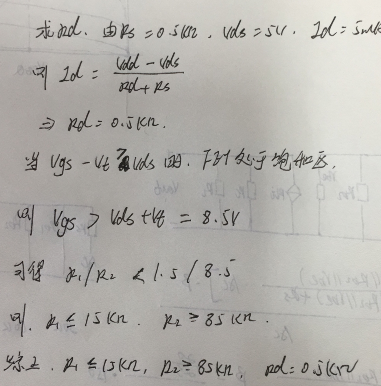 求Rd. 由Rs=0.5KΩ, Vds=5V. Id=5mA
则 Id = (Vdd-Vds)/(Rd+Rs)
⇒ Rd=0.5KΩ.
当 Vgs-Vt>Vds 时. 下时处于饱和区.
则 Vgs > Vds+Vt = 8.5V
可得 R1/R2 < 1.5/8.5
则. R1≤15KΩ. R2≥85KΩ.
综上. R1≤15KΩ, R2≥85KΩ, Rd=0.5KΩ